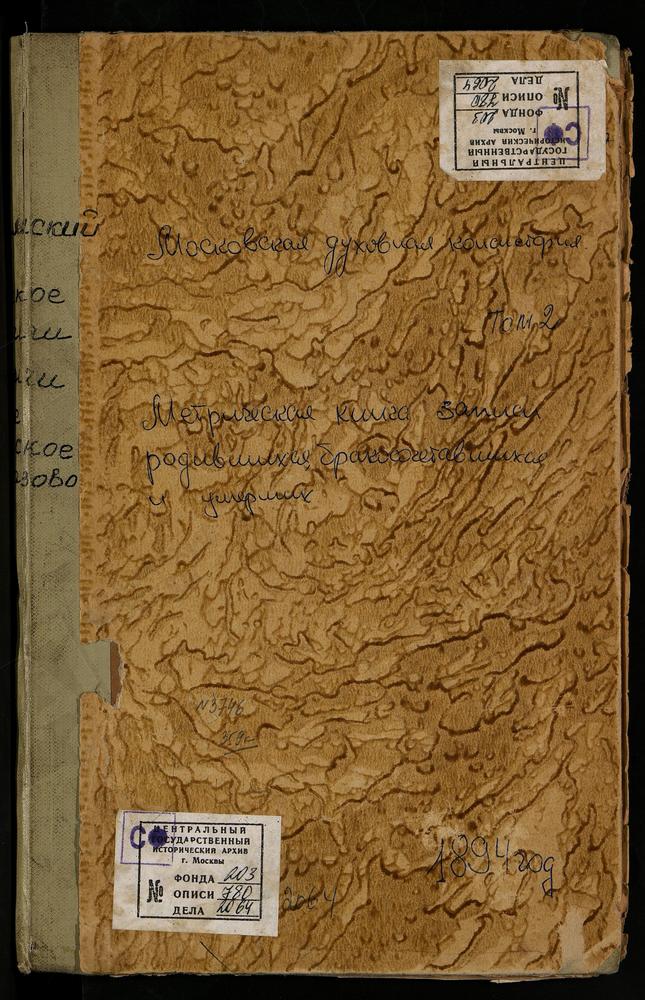 ЦЕНТРАЛЬНЫЙ
ГОСУДАРСТВЕННЫЙ
ИСТОРИЧЕСКИЙ АРХИВ
г. Москвы
№
ФОНДА 203
ОПИСИ 780
ДЕЛА 2064
Московская духовная консистория
Том 2
Метрическая книга записи
родившихся бракосочетавшихся
и умерших
N3746
359 л
1894 год
ЦЕНТРАЛЬНЫЙ
ГОСУДАРСТВЕННЫЙ
ИСТОРИЧЕСКИЙ АРХИВ
г. Москвы
№
ФОНДА 203
ОПИСИ 780
ДЕЛА 2064
2064
ский
кое
чи
чи
е
ское
зово